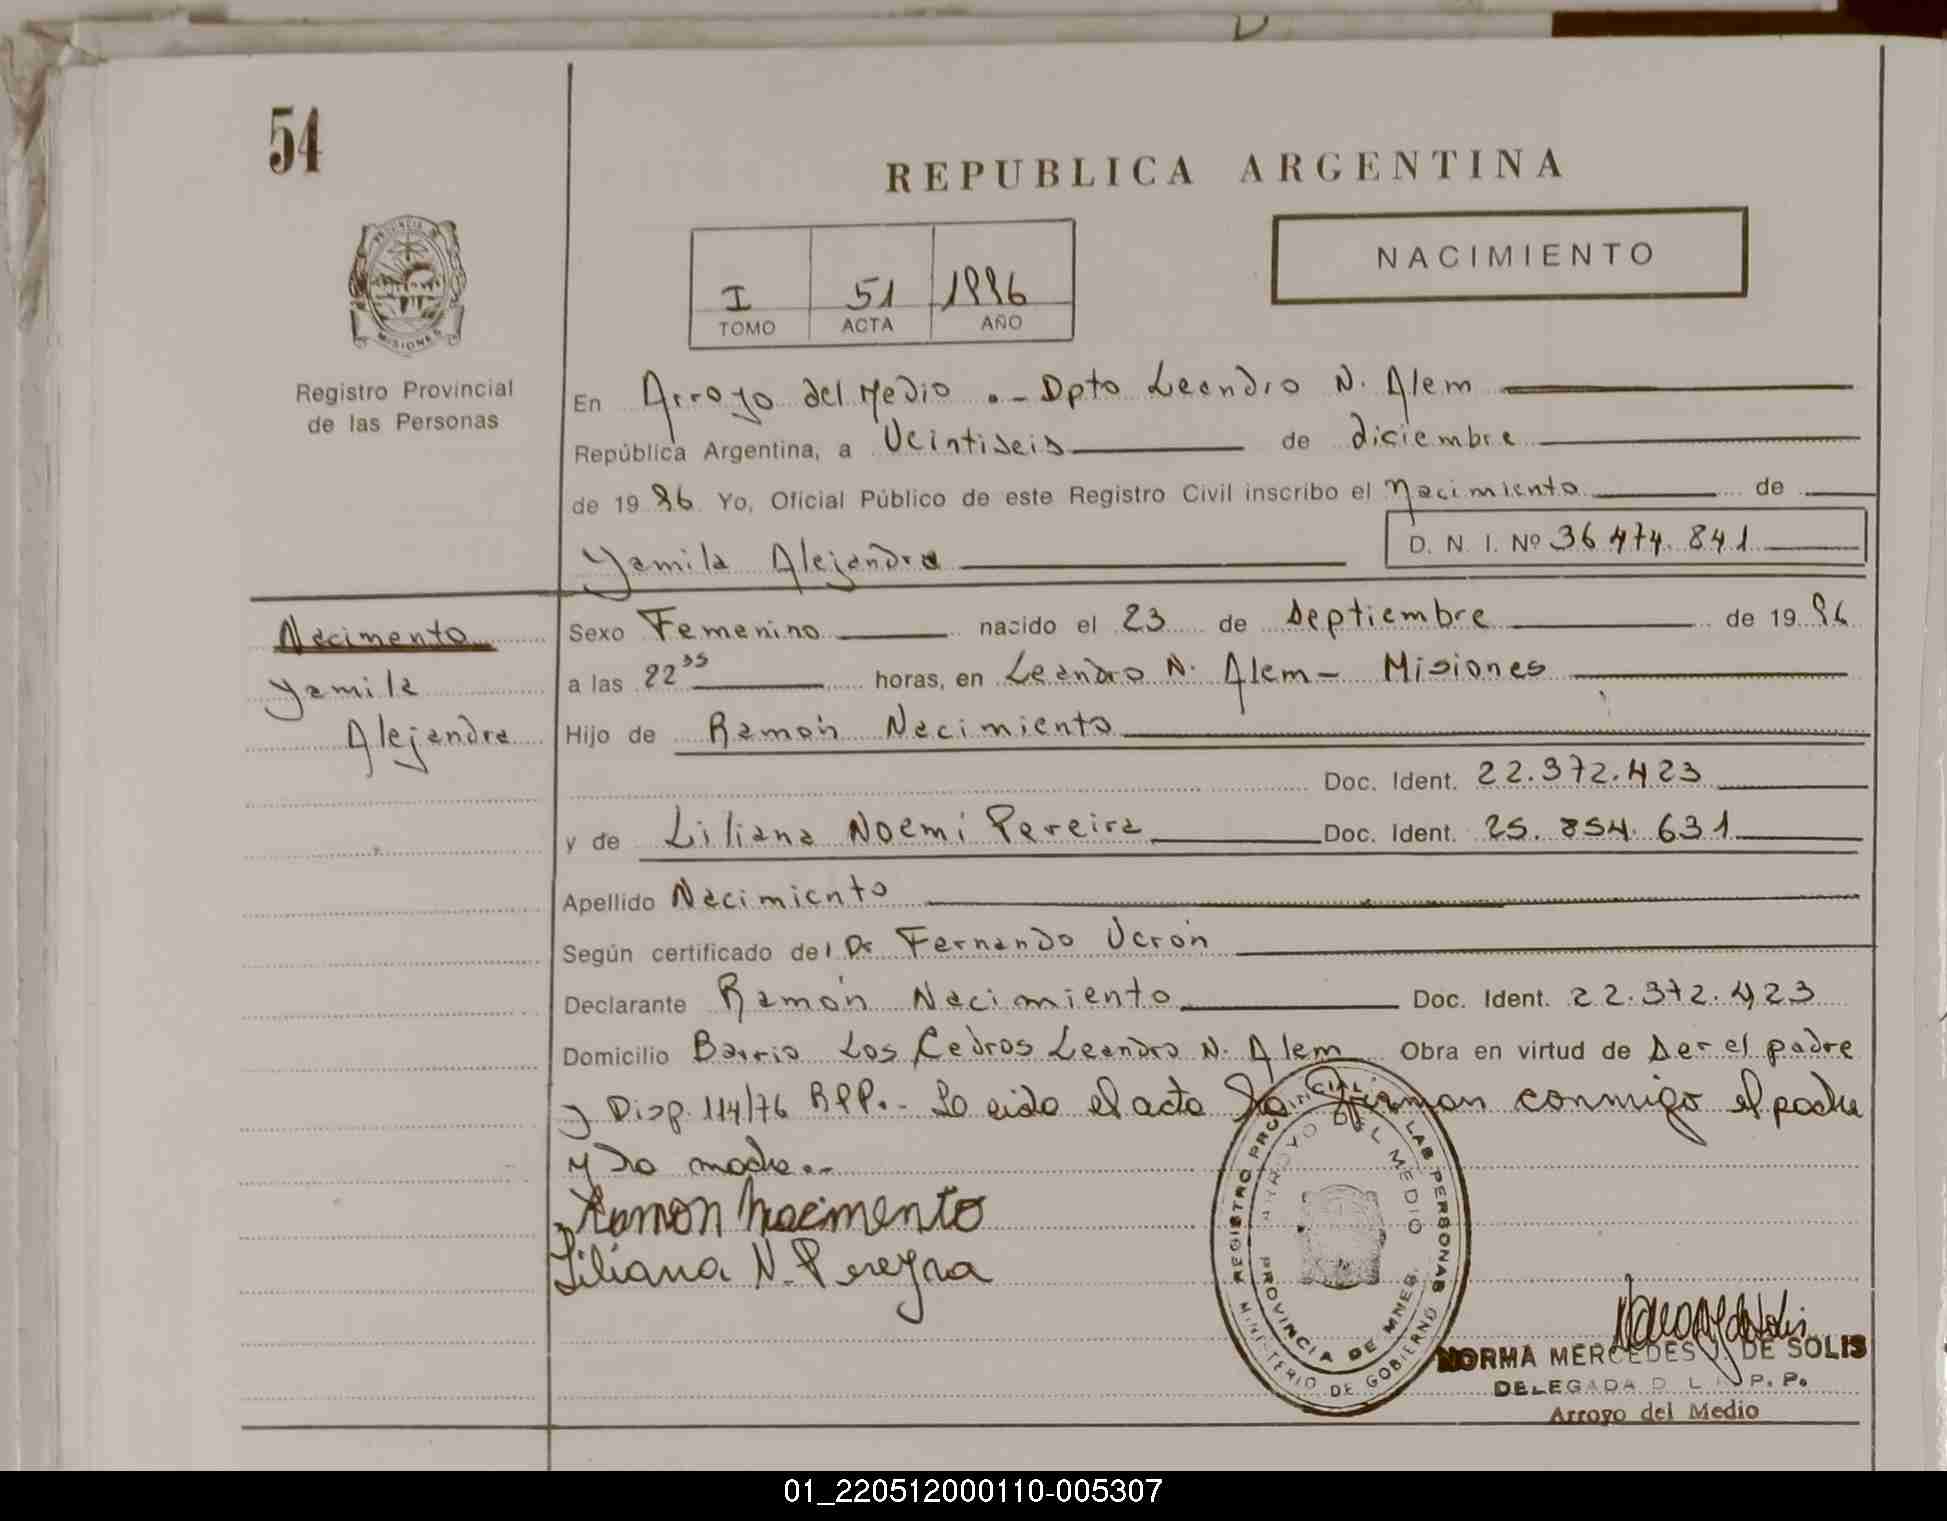 54
REPUBLICA ARGENTINA
NACIMIENTO
I 51 1996
TOMO ACTA AÑO
PROVINCIA DE
MISIONES
Registro Provincial
de las Personas
En Arroyo del Medio .- Dpto Leandro N. Alem
República Argentina, a Veintiseis de diciembre
de 19 96 Yo, Oficial Público de este Registro Civil inscribo el Nacimiento de
D. N. I. Nº 36 474. 841
Yamila Alejandra
Nacimento
Yamila
Alejandra
Sexo Femenino nacido el 23 de Septiembre de 19 96
a las 22 35 horas, en Leandro N. Alem - Misiones
Hijo de Ramón Nacimiento
Doc. Ident. 22.372.423
y de Liliana Noemí Pereira Doc. Ident. 25. 854. 631
Apellido Nacimiento
Según certificado del Dr Fernando Verón
Declarante Ramón Nacimiento Doc. Ident. 22.372.423
Domicilio Barrio Los Cedros Leandro N. Alem Obra en virtud de ser el padre
y Disp. 114/76 RPP.- Leida el acta la firman conmigo el padre
y la madre.-
Ramon Nacimento
Liliana N. Pereyra
REGISTRO PROVINCIAL DE LAS PERSONAS
MINISTERIO DE GOBIERNO
ARROYO DEL MEDIO
PROVINCIA DE MNES.
NORMA MERCEDES J. DE SOLIS
DELEGADA D L R P. P.
Arroyo del Medio
01_220512000110-005307